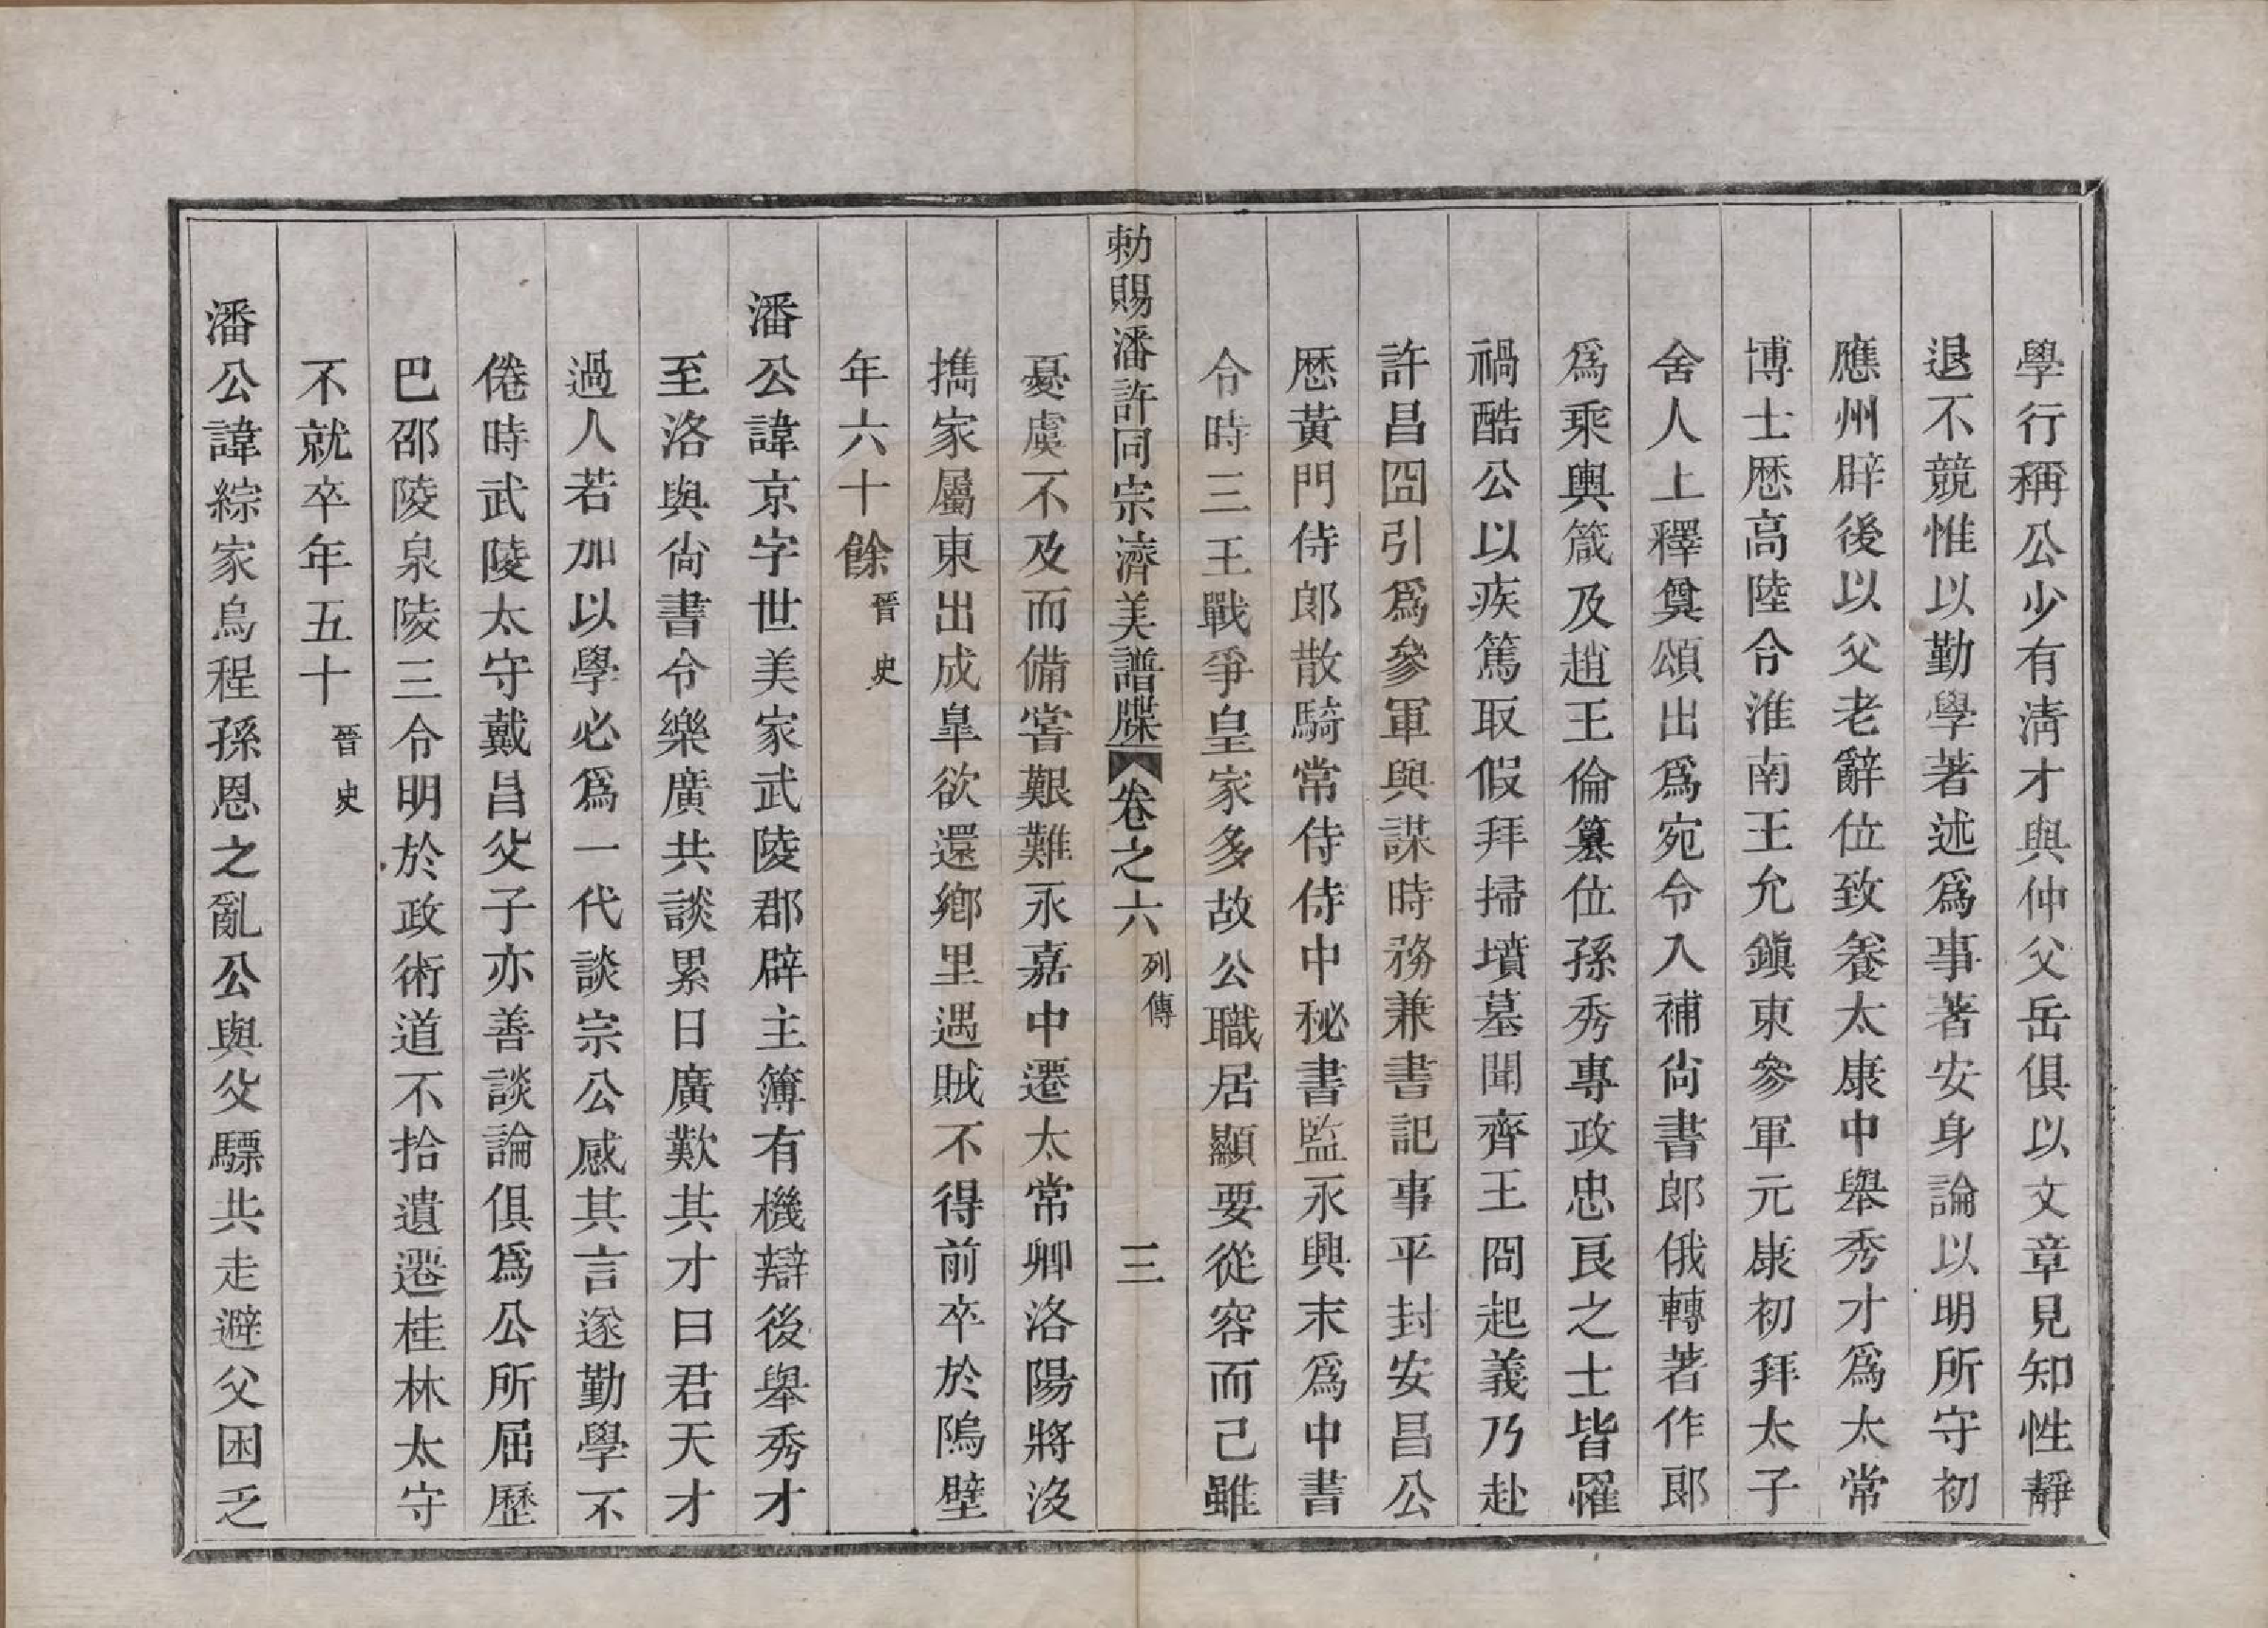 學行稱公少有淸才與仲父岳俱以文章見知性靜
退不競惟以勤學著述爲事著安身論以明所守初
應州辟後以父老辭位致養太康中舉秀才爲太常
博士歴高陸令淮南王允鎭東參軍元康初拜太子
舍人上釋奠頌出爲宛令入補尙書郎俄轉著作郞
爲乘輿箴及趙王倫簒位孫秀專政忠良之士皆罹
禍酷公以疾篤取假拜掃墳墓聞齊王冏起義乃赴
許昌冏引爲參軍與謀時務兼書記事平封安昌公
歴黃門侍郞散騎常侍侍中秘書監永興末爲中書
令時三王戰爭皇家多故公職居顯要從容而已雖
勅賜潘許同宗濟美譜牒 卷之六 列傳 三
憂虞不及而備嘗艱難永嘉中遷太常卿洛陽將沒
擕家屬東出成皐欲還鄉里遇賊不得前卒於隖壁
年六十餘 晉史
潘公諱京字世美家武陵郡辟主簿有機辯後舉秀才
至洛與尙書令樂廣共談累日廣歎其才曰君天才
過人若加以學必爲一代談宗公感其言遂勤學不
倦時武陵太守戴昌父子亦善談論俱爲公所屈歷
巴邵陵泉陵三令明於政術道不拾遺遷桂林太守
不就卒年五十 晉史
潘公諱綜家烏程孫恩之亂公與父驃共走避父困乏